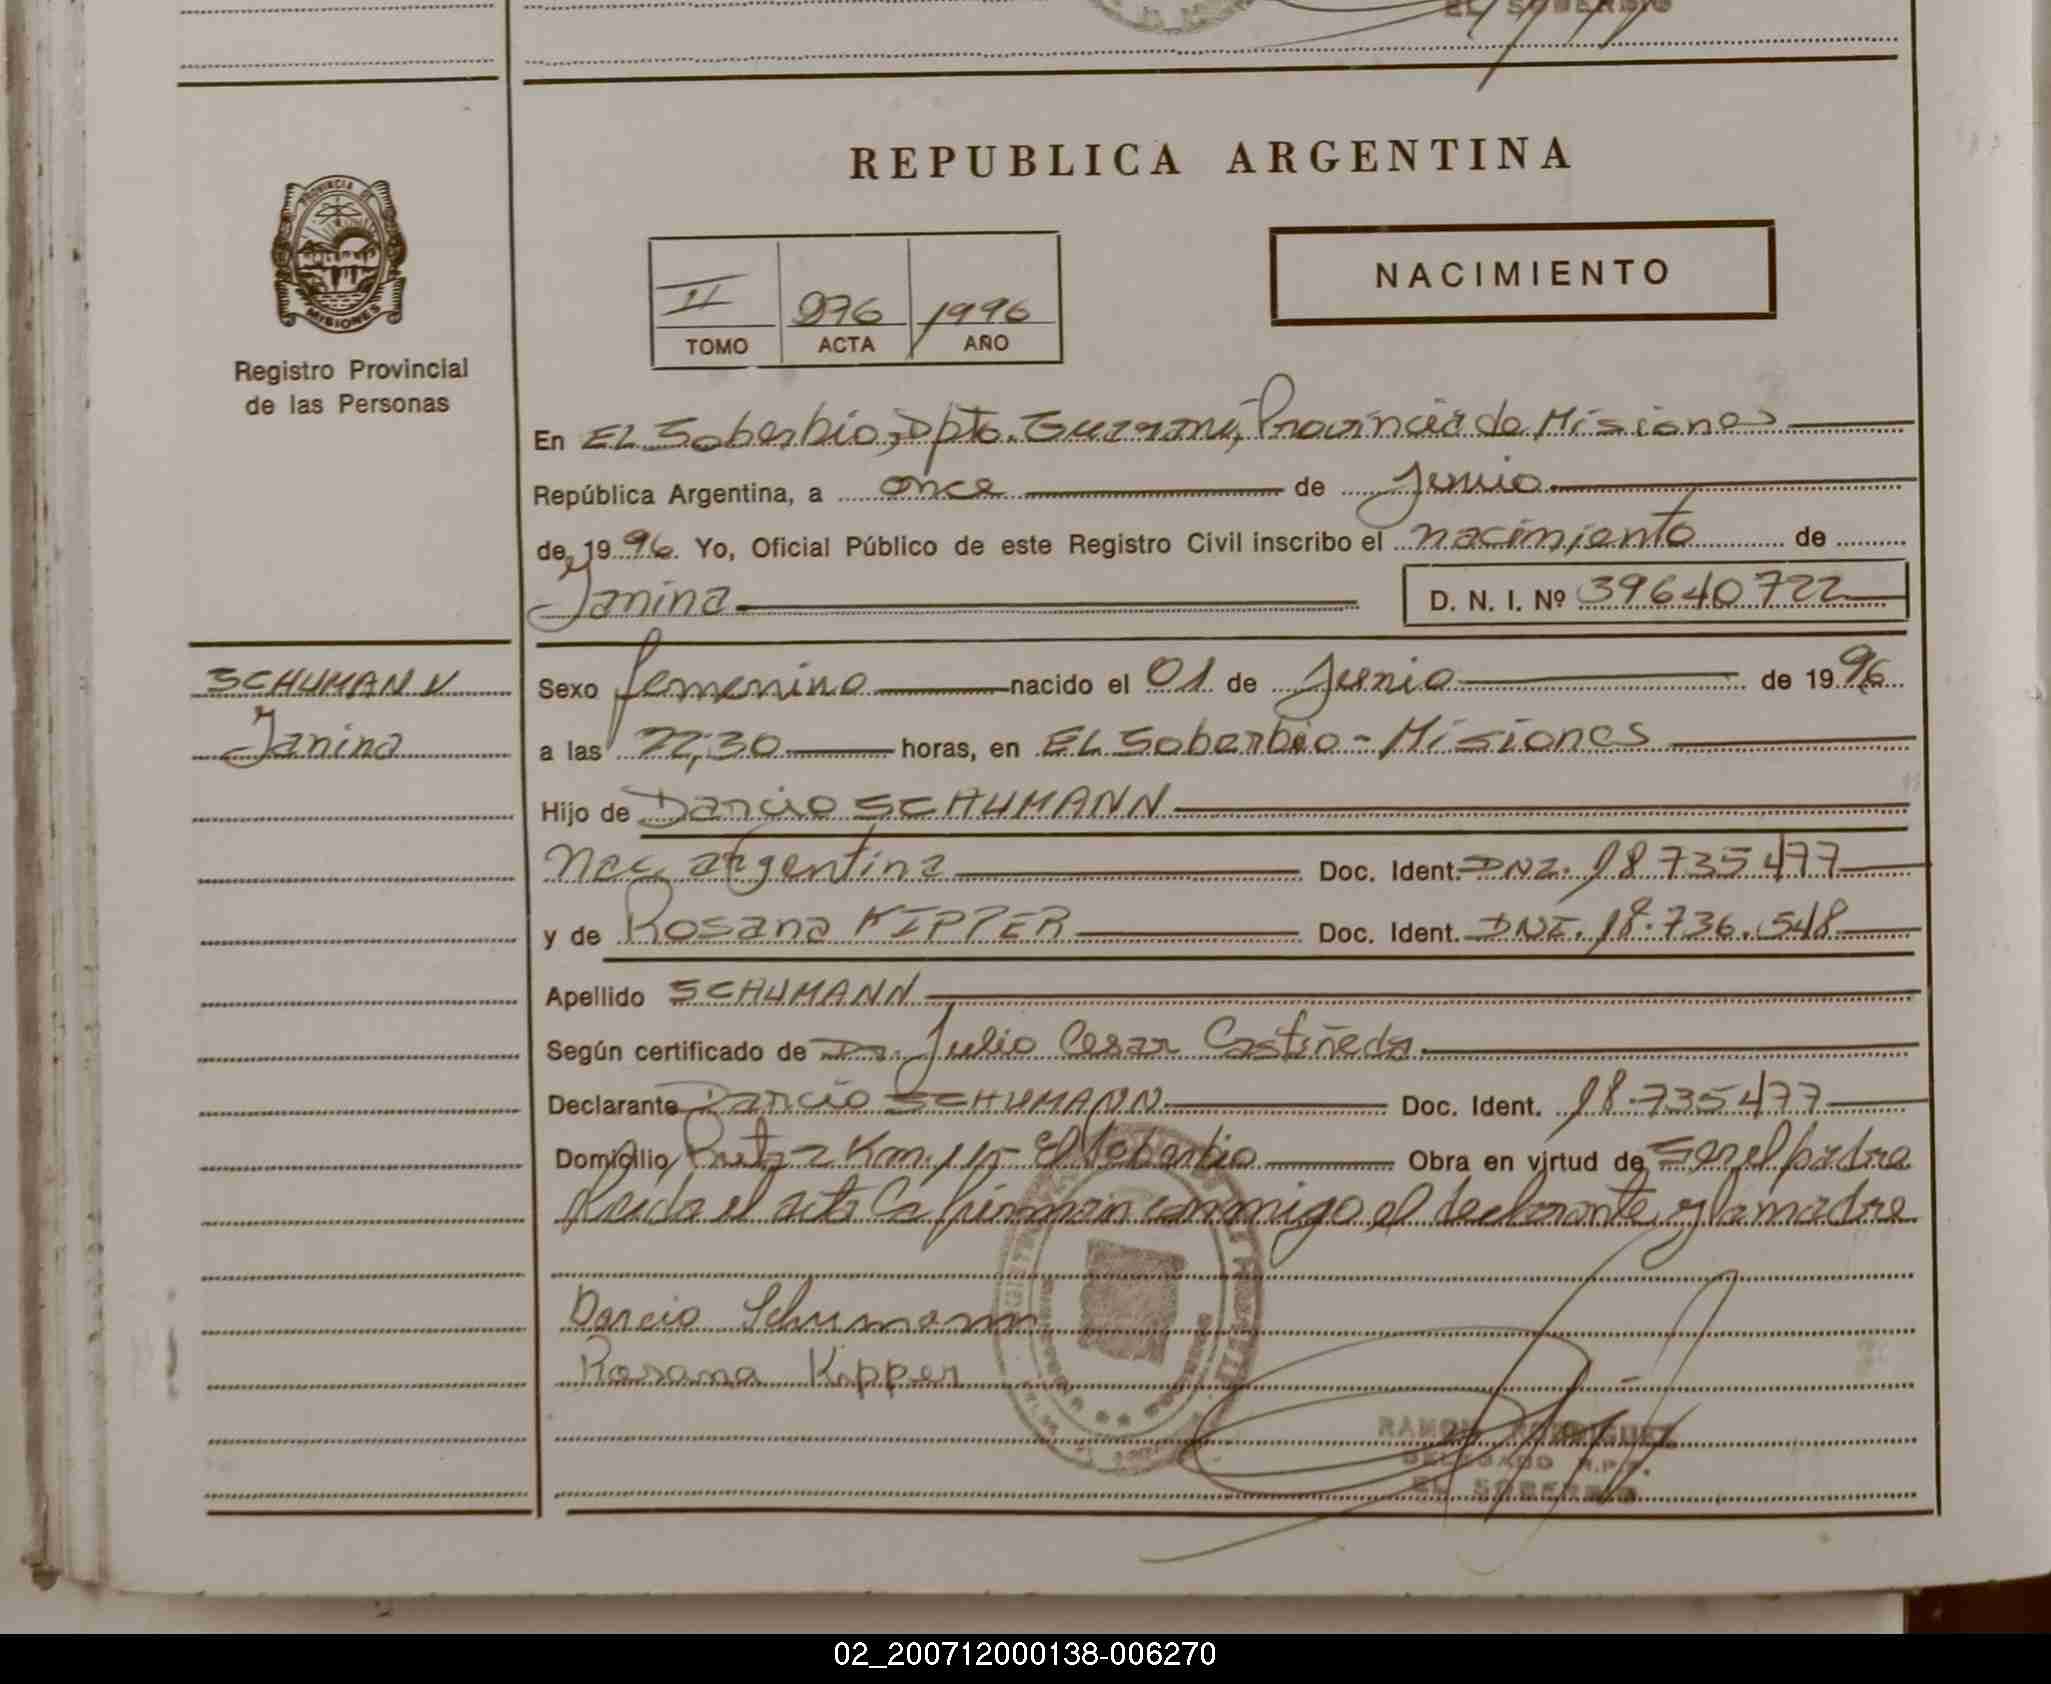 EL SOBERBIO
REPUBLICA ARGENTINA
PROVINCIA DE
MISIONES
Registro Provincial
de las Personas
II 276 1996
TOMO ACTA AÑO
NACIMIENTO
En EL Soberbio, Dpto. Guarani, Provincia de Misiones
República Argentina, a once de Junio
de 1996. Yo, Oficial Público de este Registro Civil inscribo el nacimiento de
Janina D. N. I. Nº 39640722
SCHUMANN
Janina
Sexo femenino nacido el 01 de Junio de 1996
a las 22,30 horas, en EL Soberbio - Misiones
Hijo de Darcio SCHUMANN
Nac. argentina Doc. Ident. DNI. 18.735477
y de Rosana KIPPER Doc. Ident. DNI. 18.736.548
Apellido SCHUMANN
Según certificado de Dr. Julio Cesar Castañeda
Declarante Darcio SCHUMANN Doc. Ident. 18.735477
Domicilio Ruta 2 Km. El Soberbio Obra en virtud de Ser el padre
el acta firman conmigo el declarante y la madre
Darcio Schumann
Rosana Kipper
RAMON RODRIGUEZ
DELEGADO R.P.P.
EL SOBERBIO
02_200712000138-006270